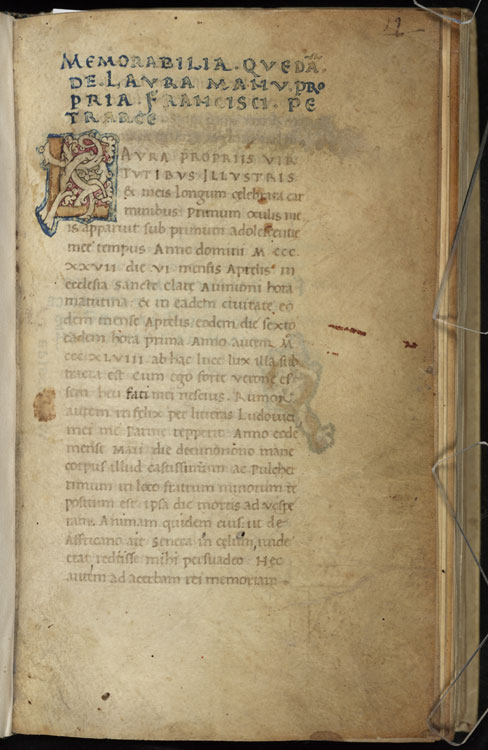 MEMORABILIA · QUEDA
DE · LAURA MANU · PRO
PRIA FRANCISCI · PE
TRARCE
LAURA PROPRIIS VIR
TUTIBUS ILLUSTRIS
& meis longum celebrata car
minibus Primum oculis me
is apparuit sub primum adolescentie
mee tempus Anno domini M CCC
XXVII die VI mensis Aprelis in
ecclesia Sancte clare Avinioni hora
matutina & in eadem civitate eo
dem mense Aprelis eodem die sexto
eadem hora prima Anno autem M
CCC XLVIII ab hac luce lux illa sub
tracta est Cum ego forte verone es
sem heu fati mei nescius. Rumor
autem infelix per litteras Ludovici
mei me Parme repperit Anno eode
mense Maii die decimonono mane
corpus illud castissimum ac Pulcher
rimum in loco fratrum minorum re
positum est ipsa die mortis ad vespe
ram. Animam quidem eius ut de
Affricano ait Seneca in celum unde
erat redisse mihi persuadeo Hec
autem ad acerbam rei memoriam